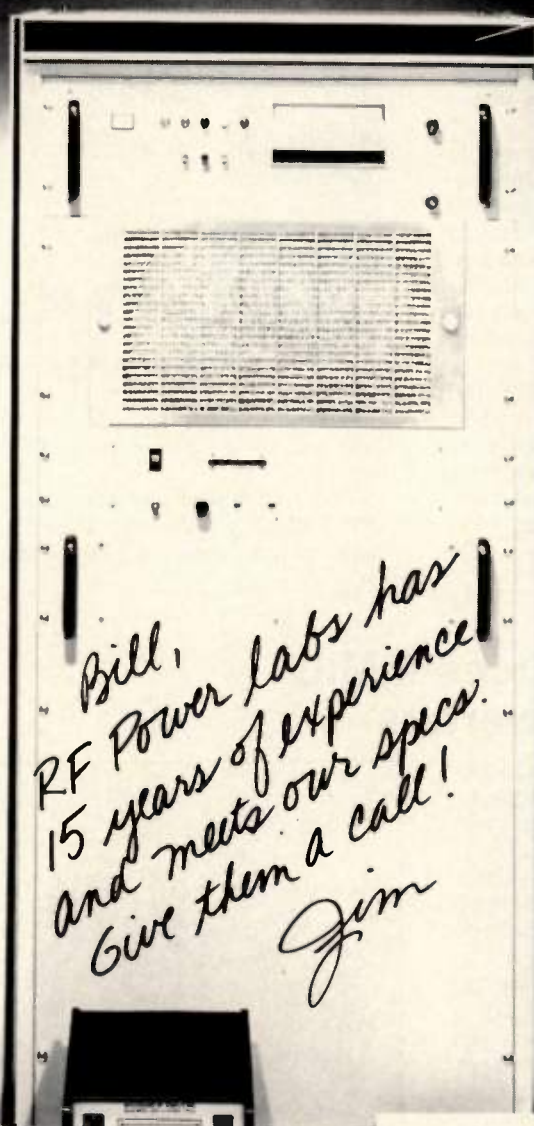 Bill,
RF Power labs has
15 years of experience
and meets our specs.
Give them a call!
Jim